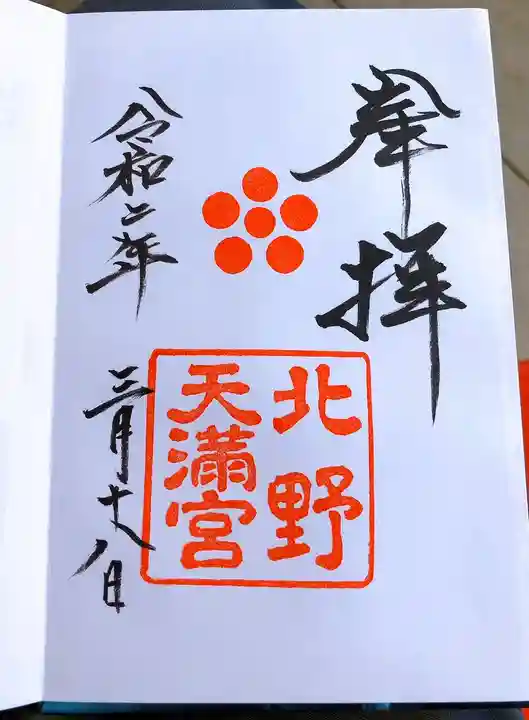 奉拝
北野
天満宮
令和二年
三月十八日